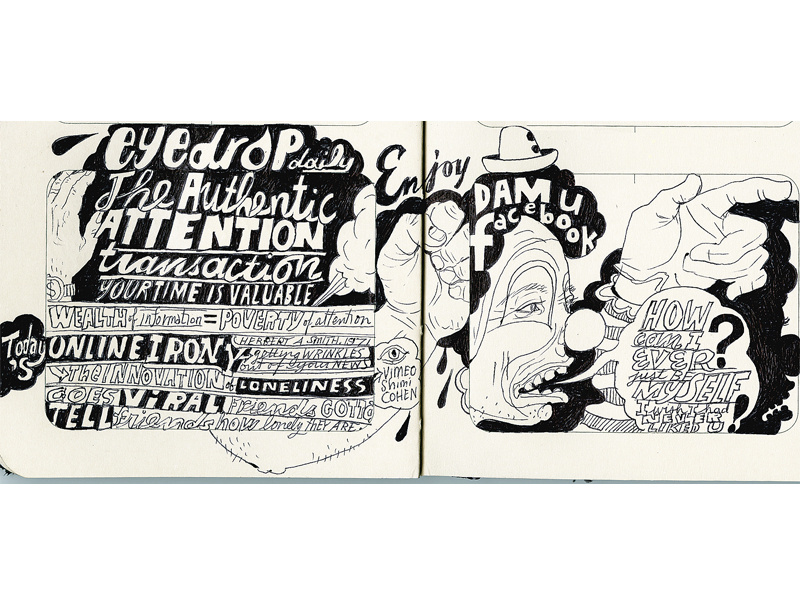 eyedrop daily
The Authentic
ATTENTION
transaction
YOUR TIME IS VALUABLE
WEALTH of information = POVERTY of attention
HERBERT A.
Today's
ONLINE IRONY
getting WRINKLES
out of your NEWS
THE INNOVATION of LONELINESS
GOES VIRAL friends GOTTA
TELL friends how lonely THEY ARE.
VIMEO
Shimi
COHEN
Enjoy
DAM U
facebook
HOW
can I
EVER
just BE
MYSELF
?
I wish I had
NEVER
LIKED U